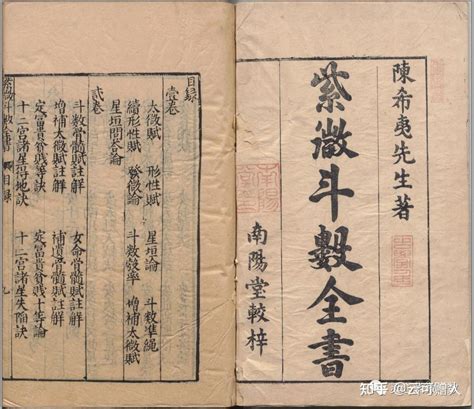 陳希夷先生著
紫微斗數全書
南陽堂較梓
目錄
壹卷
太微賦 形性賦 星垣論 斗數準繩
續形性賦 發微論 斗數 增補太微賦
星垣問答論
貳卷
斗數骨髓賦註解 女命骨髓賦註解
增補太微賦註解 補遺骨髓賦註解
定富貴貧賤訣 定富貴貧賤十等論
十二宮諸星得地訣 十二宮諸星失陷訣
斗數全書 目錄
知乎 @云可赠人